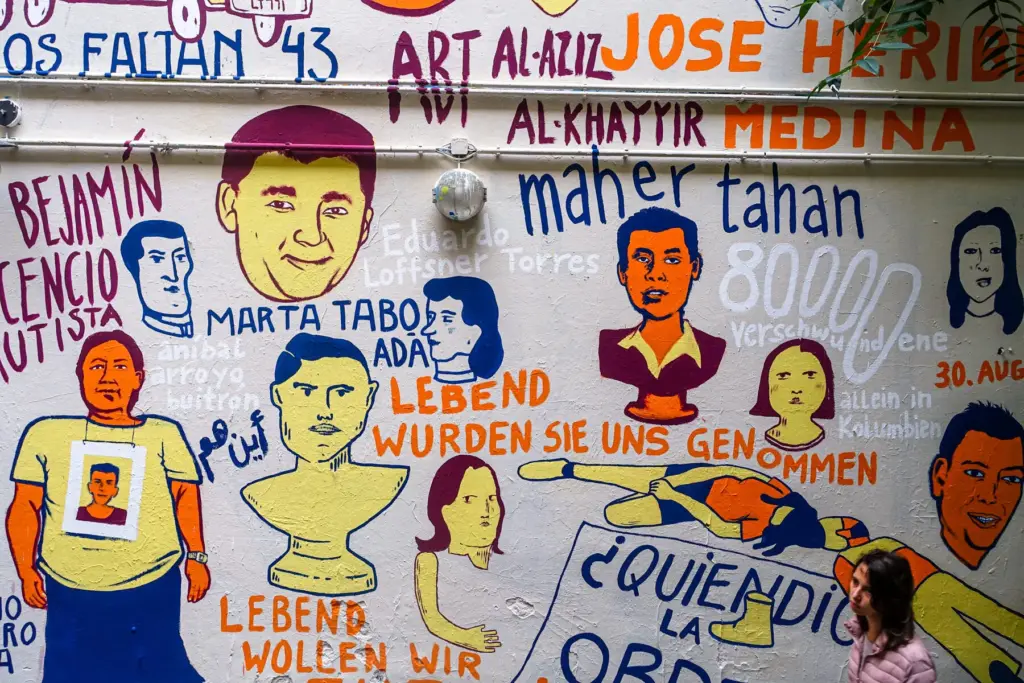 OS FALTAN 43
ART
AL-AZIZ
JOSE HERIBE
AL-KHAYYIR
MEDINA
BEJAMÍN
CENCIO
AUTISTA
Eduardo
Loffsner Torres
maher tahan
80000
Verschwundene
MARTA TABO
ADA
30. AUG
aníbal
arroyo
buitrón
أين هم
LEBEND
WURDEN SIE UNS GENOMMEN
allein in
Kolumbien
¿QUIEN DIO
LA
ORDE
LEBEND
WOLLEN WIR